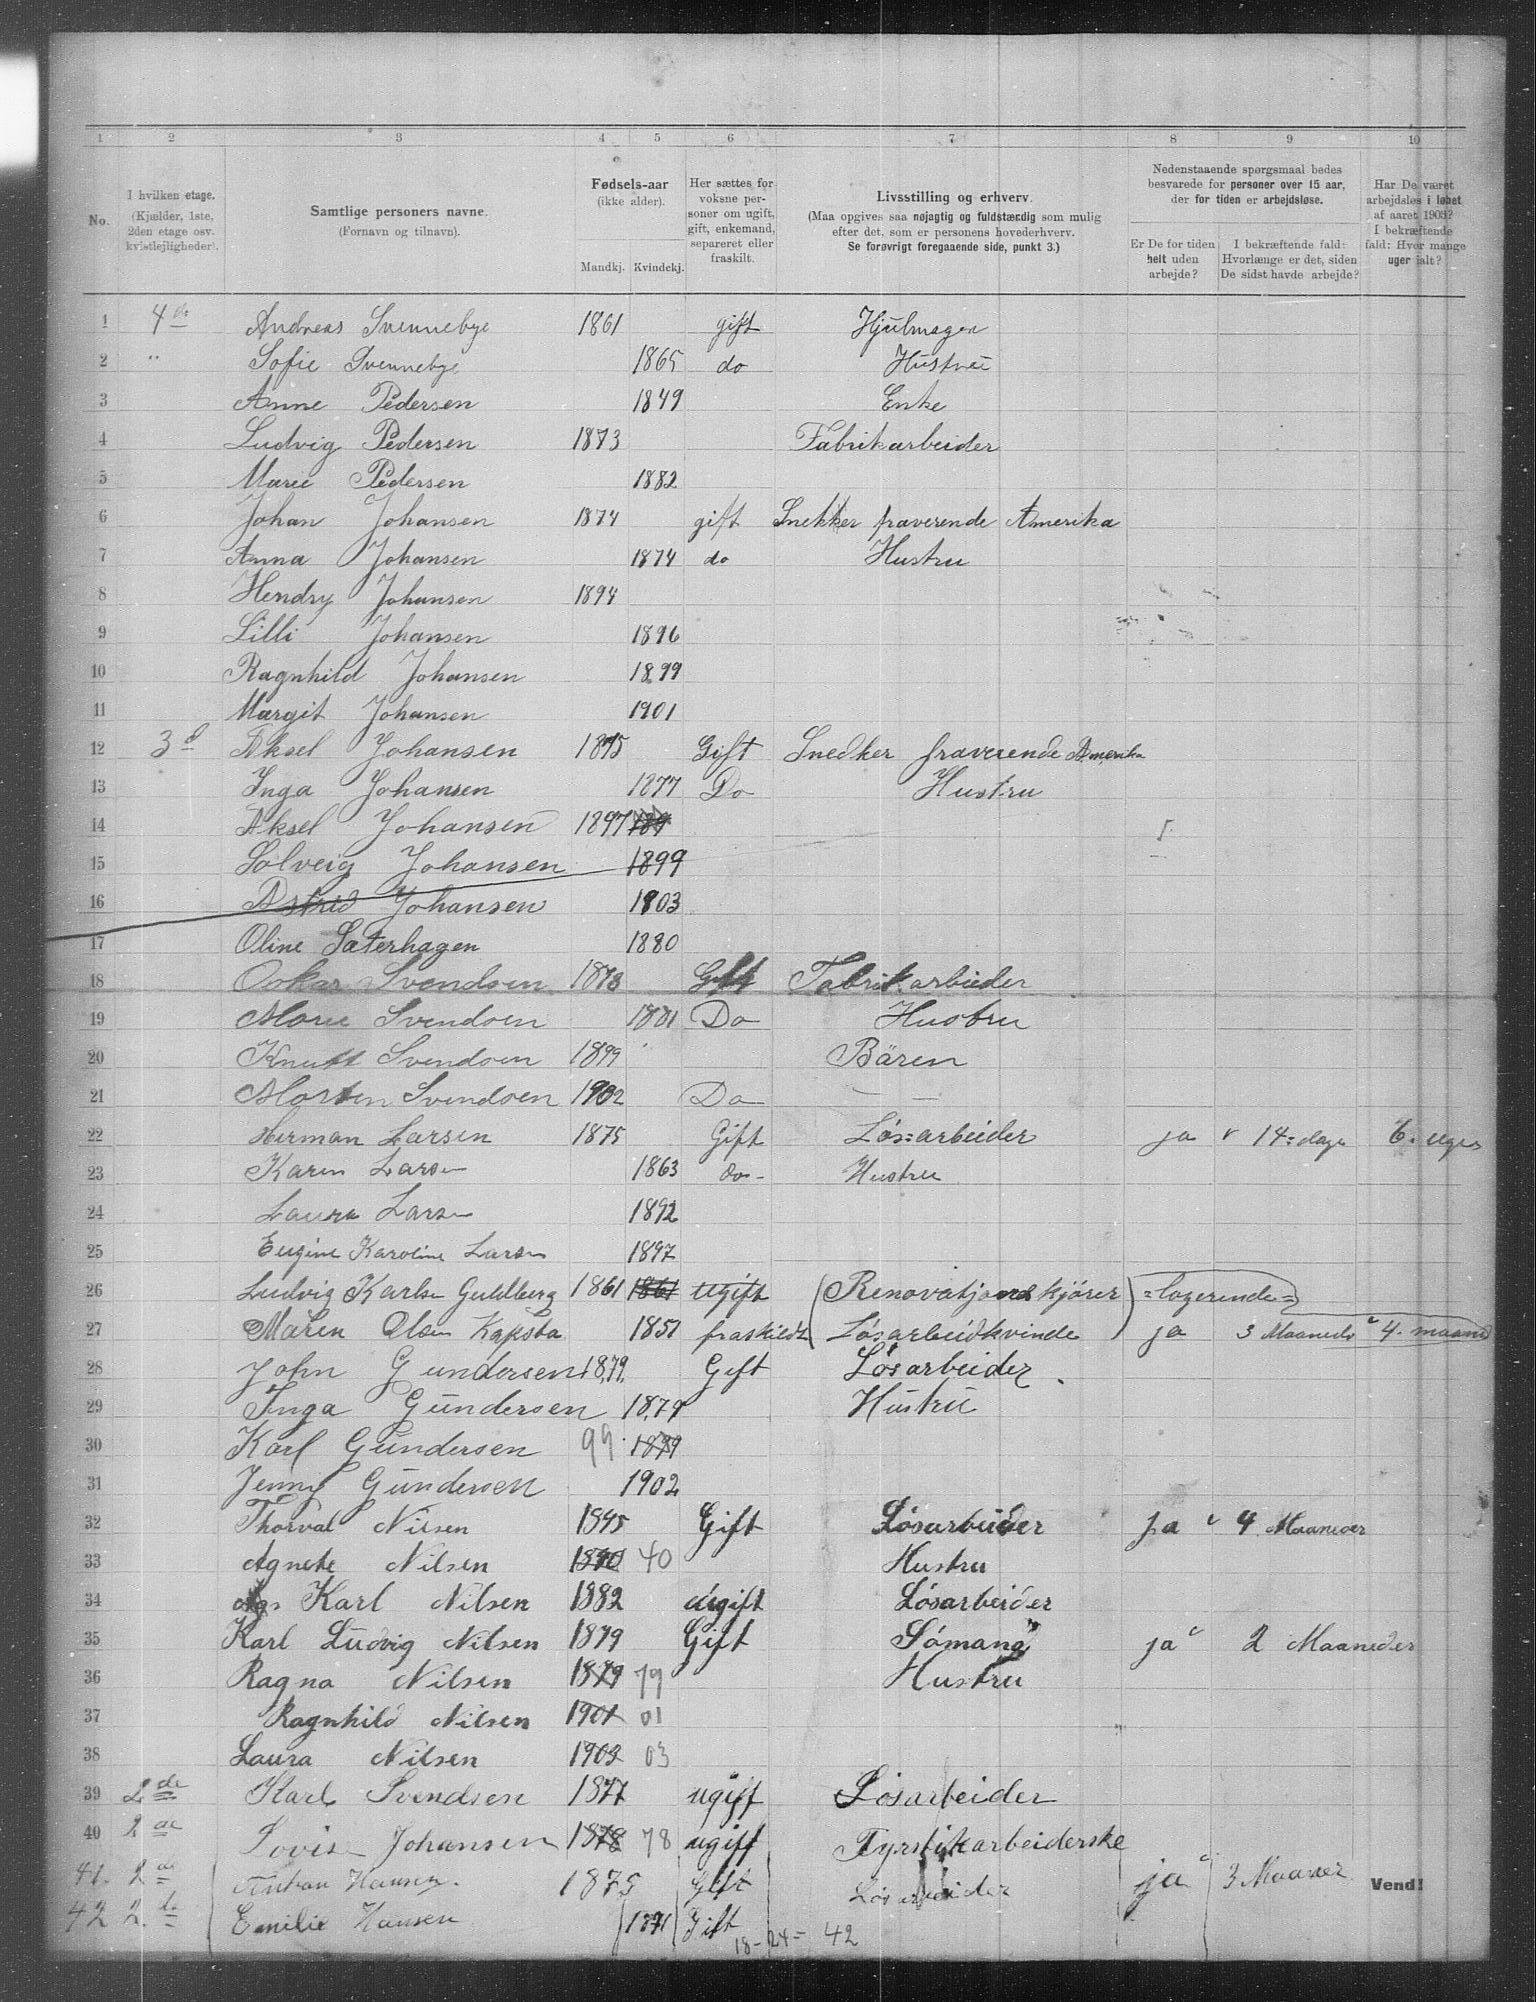 1 2 3 4 5 6 7 8 9 10
No.
I hvilken etage. (Kjælder, 1ste, 2den etage osv. kvistlejligheder).
Samtlige personers navne.
(Fornavn og tilnavn).
Fødsels-aar
(ikke alder).
Mandkj. Kvindekj.
Her sættes for voksne personer om ugift, gift, enkemand, separeret eller fraskilt.
Livsstilling og erhverv.
(Maa opgives saa nøjagtig og fuldstærdig som mulig efter det, som er personens hovederhverv.
Se forøvrigt foregaaende side, punkt 3.)
Nedenstaaende spørgsmaal bedes besvarede for personer over 15 aar, der for tiden er arbejdsløse.
Er De for tiden helt uden arbejde?
I bekræftende fald: Hvorlænge er det, siden De sidst havde arbejde?
Har De været arbejdsløs i løbet af aaret 1903? I bekræftende fald: Hvor mange uger ialt?
1 4de Andreas Svennebye 1861 gift Hjulmager
2 " Sofie Svennebye 1865 do Hustru
3 Anne Pedersen 1849 Enke
4 Ludvig Pedersen 1873 Fabrikarbeider
5 Marie Pedersen 1882
6 Johan Johansen 1874 gift Snekker fraverende Amerika
7 Anna Johansen 1874 do Hustru
8 Hendry Johansen 1894
9 Lilli Johansen 1896
10 Ragnhild Johansen 1899
11 Margit Johansen 1901
12 3d Aksel Johansen 1875 Gift Snedker fraverende Amerika
13 Inga Johansen 1877 Do Hustru
14 Aksel Johansen 1897 189
15 Solveig Johansen 1899
16 Astrid Johansen 1903
17 Oline Sæterhagen 1880
18 Oskar Svendsen 1878 Gift Fabrikarbeider
19 Marie Svendsen 1881 Do Hustru
20 Knutt Svendsen 1899 Bären
21 Morten Svendsen 1902 Do
22 Herman Larsen 1875 Gift Løs=arbeider ja 14=dage 6. uger
23 Karen Larsen 1863 do- Hustru
24 Laura Larsen 1892
25 Eugine Karoline Larsen 1897
26 Ludvig Karlsen Guldberg 1861 1861 ugift (Renovatjonskjører) =logerende=
27 Maren Olsen Kapsta 1851 fraskildt Løsarbeidkvinde ja 3 Maaneder 4. maand
28 John Gundersen 1879. Gift Løsarbeider.
29 Inga Gundersen 1879 Hustru
30 Karl Gundersen 99 1899
31 Jenny Gundersen 1902
32 Thorval Nilsen 1845 Gift Løsarbeider ja 4 Maaneder
33 Agnete Nilsen 1840 40 Hustru
34 Karl Nilsen 1882 ugift Løsarbeider
35 Karl Ludvig Nilsen 1879 Gift Sømand ja 2 Maaneder
36 Ragna Nilsen 1879 79 Hustru
37 Ragnhild Nilsen 1901 01
38 Laura Nilsen 1903 03
39 2de Karl Svendsen 1877 ugift Løsarbeider
40 2de Lovise Johansen 1878 78 ugift Fyrstikarbeiderske
41. 2de Antean Hansen. 1875 Gift Løsarbeider ja 3 Maaner Vend!
42 2de Emilie Hansen 1871 Gift
18-24= 42